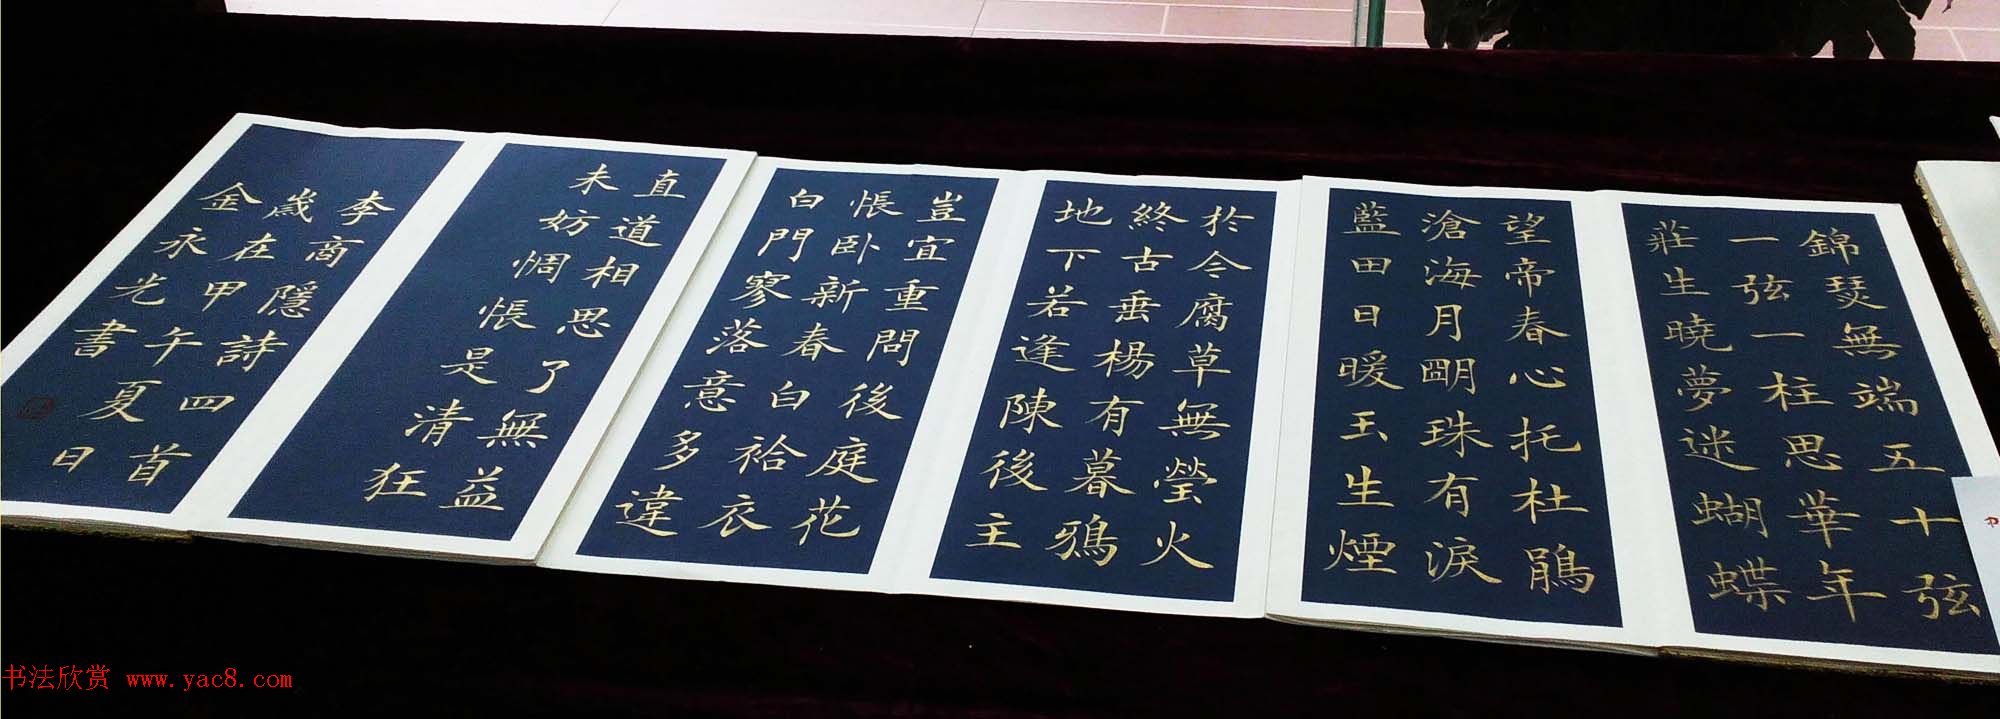 錦瑟無端五十弦
一弦一柱思華年
莊生曉夢迷蝴蝶
望帝春心托杜鵑
滄海月明珠有淚
藍田日暖玉生煙
於今腐草無螢火
終古垂楊有暮鴉
地下若逢陳後主
豈宜重問後庭花
悵卧新春白袷衣
白門寥落意多違
直道相思了無益
未妨惆悵是清狂
李商隱詩四首
歲在甲午夏日
金永光書
书法欣赏 www.yac8.com